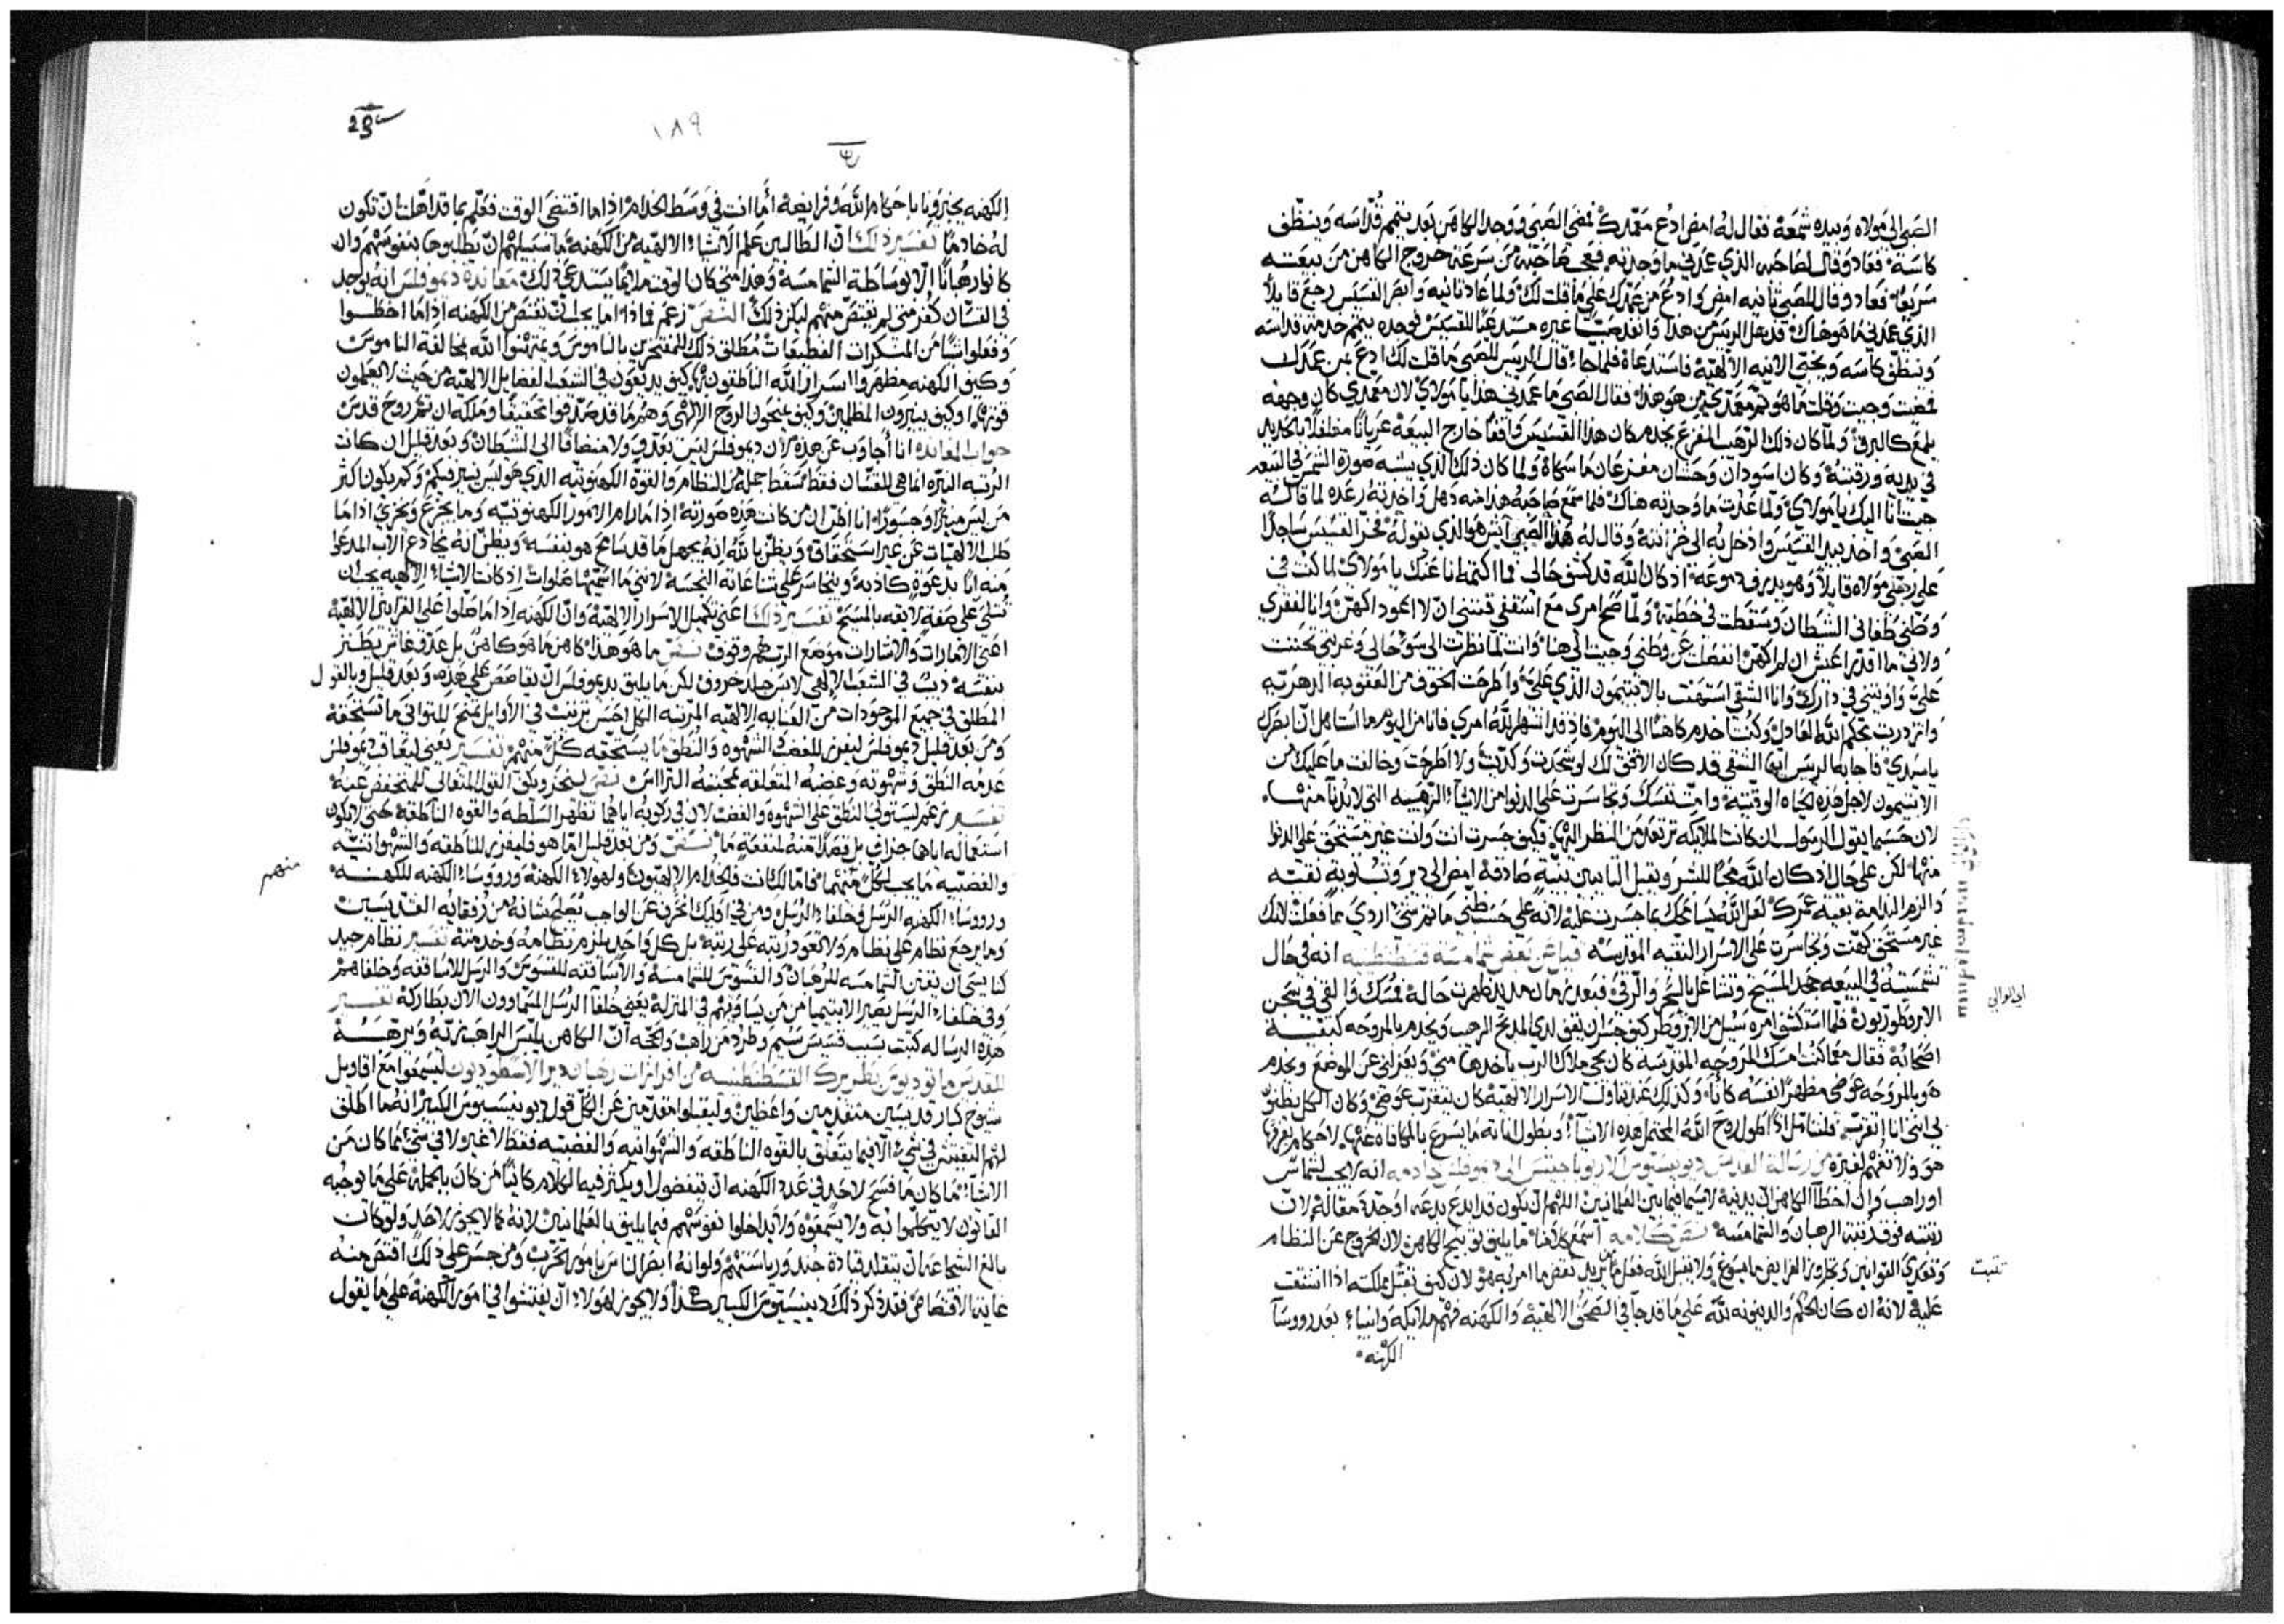 الصبي الى مولاه وبيده شمعة فقال له امض ادع معمدك فمضى الصبي ووجد الكاهن بعد يتمم قداسه وينظف
كاسه فعاد وقال لصاحبه الذي عمدني ما وجدته فعجب صاحبه من سرعة خروج الكاهن من بيعته
سريعا فعاد وقال للصبي ثانيه امض وادع من عمدك على ما قلت لك ولما عاد ثانيه وابصر القسيس رجع قايلا
الذي عمدني ما هو هناك غيره مستدعيا للقسيس فوجده يتمم خدمة قداسه
وينظف كاسه ويخبي الانيه الالهيه فاستدعاه فلما جا قال الريس للصبي ما قلت لك ادع من عمدك
فمضيت وجيت وقلت ما هو ثم معمدي من هو هذا فقال الصبي ما عمدني هذا يا مولاي لان معمدي كان وجهه
يلمع كالبرق ولما كان ذلك الرهب المفزع يخدم كان هذا القسيس واقفا خارج البيعة عريانا مغلغلا بالحديد
في يديه ورقبته وكان اسودان وحشان مفزعان ماسكاه ولما كان ذلك الذي يشبه صورة الشمس في البيعه
جيت انا اليك يا مولاي ولما عدت ما وجدته هناك فلما سمع صاحبه هذا منه ذهل واخذته رعده لما قاله
الصبي واخذ بيد القسيس وادخل به الى خزانته وقال له هذا الصبي ايش هو الذي يقوله فخر القسيس ساجدا
على رجلي مولاه قايلا وهو يذرف دموعه اذ كان الله قد كشف حالي فما اكتمه انا عنك يا مولاي لما كنت في
وطني طغاني الشيطان وسقطت في خطية ولما صح امري مع اسقفي قننني ان لا اعود اكهن وانا لفقري
ولاني ما اقدر اعيش ان لم اكهن انفصلت عن وطني وجيت الى هنا وانت لما نظرت الى سو حالي وغربتي تحننت
علي واويتني في دارك وانا الشقي استهنت بالابتيمون الذي علي واطرحت الخوف من العقوبه الدهريه
وازدريت بحكم الله العادل وكنت اخدم كاهنا الى اليوم فاذ قد اشهر الله امري فانا من اليوم ما استاهل ان ابصرك
يا سيدي فاجابه الريس ايها الشقي قد كان الاوفق لك لو شحدت وكديت ولا اطرحت وخالفت ما عليك من
الابتيمون لاجل هذه الحياه الوقتية وامت نفسك وتجاسرت على الدنو من الاشيا الرهيبه التي لا يدنا منها
لان حسبما يقول الرسول ان كانت الملايكه ترتعد من النظر اليها فكيف جسرت انت وانت غير مستحق على الدنو
منها لكن على حال اذ كان الله محبا للبشر ويقبل التايبين بنية صادقة امض الى دير وتب توبة نقية
والزم الندامة بقية عمرك لعل الله يسامحك بما جسرت عليه لانه على حسب ظني ما ثم شي اردي مما فعلت لانك
غير مستحق كهنت وتجاسرت على الاسرار النقيه المقدسه قيل عن بعض شمامسة قسطنطينيه انه في حال
تشمسته في البيعه جحد المسيح وتشاغل بالسحر والرقي فبعد زمان مديد ظهرت حاله فمسك والقي في سجن
الابروطوريون فلما استكشف امره سيل من الابروطر كيف جسر ان يقف لدى المذبح الرهيب ويخدم بالمروحه كبقية
اصحابه فقال مما كنت امسك المروحه المقدسه كان يجي ملاك الرب ياخدها مني ويعزلني عن الموضع ويخدم
هو بالمروحه عوضي مظهرا نفسه كانا وكذلك عند تناول الاسرار الالهيه كان يتقرب عوضي وكان الكل يظنون
بي انني انا اتقرب فلنتامل اذا طول روح الله المحتمل هذه الاشيا وبطول اناته ما يسرع بالمكافاة عنها لاحكام يعرفها
هو ولا تفهم لغيره من رسالة القديس ديونيسيوس الاريوباجيتس الى ديموفلس خادمه انه لا يجب لشماس
او راهب وان اخطا الكاهن ان يدينه لا سيما فيما بين العلمانيين اللهم ان يكون قد ابدع بدعه او حدة مقاله لان
رتبته فوق رتبة الرهبان والشمامسه نص كلامه اسمع كلامنا ما يليق توبيخ الكاهن لان الخروج عن النظام
وتعدي القوانين وتجاوز الفرايض ما يسوغ ولا يقبل الله فعل من يريد نقض ما امر به هو لان كيف تثبت مملكته اذا انشقت
عليه لانه ان كان الحكم والدينونه لله على ما قد جا في الصحف الالهية والكهنه فهم ملايكه وانبيا بعد رووسا
الكهنه
ابي الوالي
تثبت
١٨٩
الكهنه يخبرونا باحكام الله وفرايضه اما انت في وسط الخدام اذا ما اقتضى الوقت فعلم بما قد اهلت ان تكون
له خادما تفسير ذلك ان الطالبين علم الاشيا الالهيه من الكهنه ما سبيلهم ان يطلبوها بنفوسهم وان
كانوا رهبانا الا بوساطة الشمامسة وهذا متى كان الوقت ملايما يستدعي ذلك معاندة ديموفلس انه يوجد
في القسان كفر متى لم يقتص منهم ليكن ذلك النص زعم فماذا اما يجب ان نقتص من الكهنه اذا ما اخطوا
وفعلوا شيا من المنكرات الفظيعات مطلق ذلك للمفتخرين بالناموس ويمتهنوا الله بمخالفة الناموس
وكيف الكهنه مظهروا اسرار الله الناطقون كيف يذيعون في الشعب الفضايل الالهية من حيث لا يعلمون
قوتها او كيف ينيرون المظلمين وكيف يمنحون الروح الالهي وهم ما قد صدقوا تحقيقا وملكه ان ثم روح قدس
جواب المعانده انا اجاوب عن هذه لان ديموفلس ليس بعدوي ولا منضافا الى الشيطان وبعد قليل ان كانت
الرتبه النيره انما هي للقسان فقط سقط جملة من النظام والقوة الكهنوتيه الذي هو ليس ينير فيكم وكم يكون اكثر
من ليس منيرا وجسورا انا اظن ان من كانت هذه صورته اذا ما رام الامور الكهنوتيه وما يجزع ويخزى اذا ما
طلب الالهيات عن غير استحقاق ويظن بالله انه يجهل ما قد سامح هو بنفسه ويظن انه يخادع الاب المدعوا
منه ابا بدعوة كاذبة ويتجاسر على شناعاته النجسة لانني ما اسميها صلوات اذ كانت الاشيا الالهيه يجب ان
تتلى على صفة لايقه بالمسيح تفسير ذلك اعني تكميل الاسرار الالهية وان الكهنه اذا ما صلوا على القرابين الالهية
اعني الامارات والاشارات موضع الرب هم وقوف نص ما هو هذا كاهن ما هو كاهن بل عدو غاش يطنز
بنفسه ذيب في الشعب الالهي لابس جلد خروف لكن ما يليق بديموفلس ان يقاصص على هذه وبعد قليل وبالقول
المطلق في جميع الموجودات من العنايه الالهيه المرتبه الكل احسن ترتيب في الاوايل تمنح للثواني ما تستحقه
ومن بعد قليل ديموفلس ليفرز للغضب والشهوه والنطق ما يستحقه كل منهم تفسير يعني ليعاقب ديموفلس
عدمه النطق وشهوته وغضبه المتعلقه
تفسير زعم ليستولي النطق على الشهوه والغضب لان في ركوبه اياهما تظهر السلطه والقوه الناطقة حتى لا يكون
استعماله اياها جزاف بل قصدا منه لمنفعة ما نص ومن بعد قليل اما هو فليفرز للناطقه والشهوانيه
والغضبيه ما يجب لكل منهما فاما لك انت فالخدام الالهيون ولهولا الكهنة ورووسا الكهنه للكهنه
ورووسا الكهنه الرسل وخلفا الرسل ومن في اوليك انحرف عن الواجب يصلح شانه من رفقايه القديسين
وما يرجع نظام على نظام ولا تعود رتبه على رتبة بل كل واحد يلزم نظامه وخدمته تفسير نظام جيد
وفي خلفا الرسل يصير الابتيميا من من يساويهم في المنزله يعني خلفا الرسل المتساوون الان بطاركة تفسير
هذه الرساله كتبت بسبب قسيس شتم وطرد من راهب والحجه ان الكاهن يلبس الراهب زيه ويرهبه
للقديس ماثوديوس بطريرك القسطنطينيه من افرازات رهبان دير الاسطوديون ليسمعوا مع اقاويل
شيوخ كبار قديسين متقدمين واعظين وليقبلوا متقدمين عن الكل قول ديونيسيوس الكبير انه ما اطلق
لهم التفتيش في شي الا فيما يتعلق بالقوه الناطقه والشهوانيه والغضبيه فقط لا غير لا في شي مما كان من
الاشيا مما كان ما فسح لاحد في عدد الكهنه ان يتفضول او يكثر فيه الكلام كاينا من كان بالجملة على ما يوجبه
القانون لا يتكلموا به ولا يسمعوه ولا يداخلوا نفوسهم فيما يليق بالعلمانيين لانه كما لا يجوز لاحد ولو كان
بالغ الشجاعه ان يتقلد قيادة جند ورياستهم ولو انه ابصر الناس بامور الحرب ومن جسر على ذلك اقتص منه
غاية الاقتصاص فقد ذكر ذلك دينيسيوس الكبير هكذا ولا يجوز لهولا ان يفتشوا في امور الكهنة على ما يقول
منهم